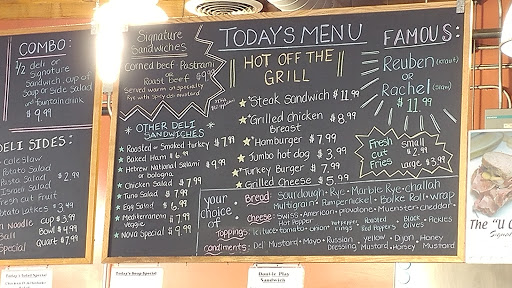 COMBO:
1/2 deli or
signature
sandwich, cup of
soup or side salad
and fountain drink
$9.99
DELI SIDES:
Cole Slaw
Potato Salad
Pasta Salad $2.99
Israeli Salad
Fresh Cut Fruit
Potato Latkes $3.49
Noodle cup $3.99
Ball Bowl $4.99
Special Quart $7.99
Signature
Sandwiches
Corned beef · Pastrami
or
Roast beef $9.99
Served warm on specialty
rye with spicy deli mustard
OTHER DELI
SANDWICHES
Roasted or Smoked turkey $7.99
Baked Ham $6.99
Hebrew National salami $9.99
or bologna
Chicken Salad $7.99
Tuna Salad $7.99
Egg Salad $6.99
Mediterranean $7.99
Veggie
Nova Special $9.99
TODAY'S MENU
HOT OFF THE
GRILL
Steak sandwich $11.99
Grilled chicken $8.99
breast
Hamburger $7.99
Jumbo hot dog $3.99
Turkey Burger $7.99
Grilled Cheese $5.99
FAMOUS:
Reuben (kraut)
OR
Rachel (slaw)
$11.99
Fresh
Cut
Fries
small
$2.99
large $3.99
your
choice
of
Bread: Sourdough · Rye · Marble Rye · challah
Multigrain · Pumpernickel · Bolke Roll · wrap
cheese: swiss · American · provolone · Muenster · cheddar
Hot Pepper
toppings: lettuce · tomato · onion · rings · Roasted Red Peppers · Black Olives · Pickles
condiments: Deli Mustard · Mayo · Russian Dressing · yellow Mustard · Dijon · Honey Mustard
The "U
Today's Salad Special
Today's Soup Special
Double Play
Sandwich